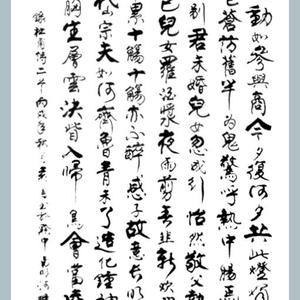 動如參與商今夕復何夕共此燈燭
已蒼訪舊半為鬼驚呼熱中腸焉
別君未婚兒女忽成行怡然敬父
已兒女羅酒漿夜雨剪春韭新炊
累十觴十觴亦不醉感子故意長明
岱宗夫如何齊魯青未了造化鍾神
胸生層雲決眥入歸鳥會當凌
錄杜甫詩二首丙戌年秋